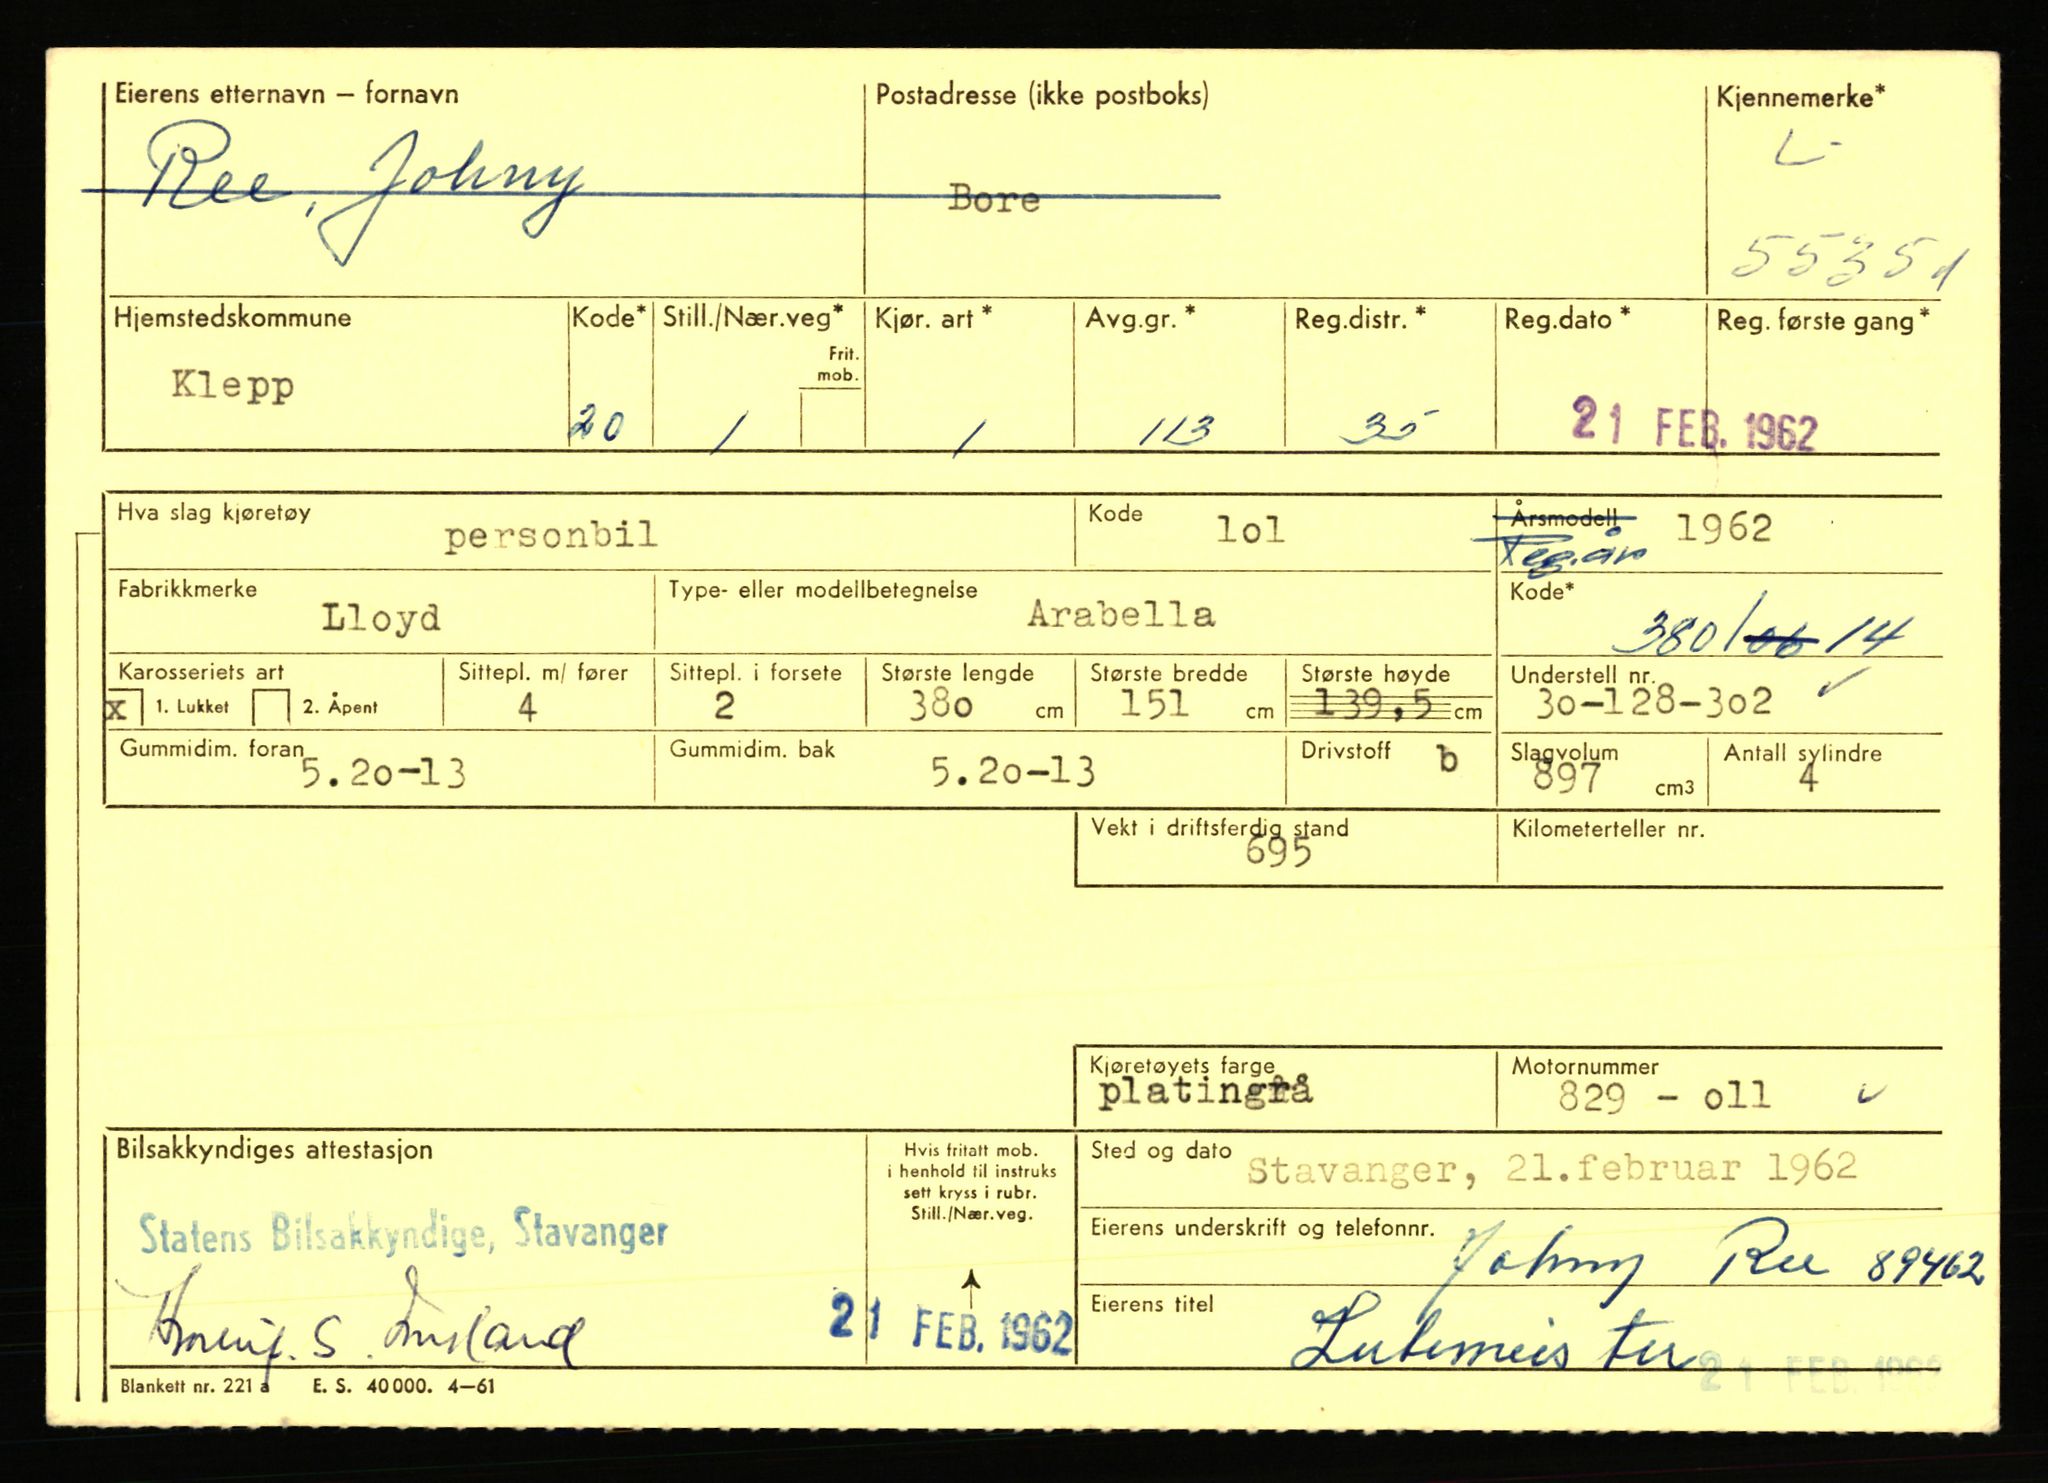 Eierens etternavn — fornavn Postadresse (ikke postboks) Kjennemerke*
Ree, Johny Bore L-
5535
Hjemstedskommune Kode* Still./Nær.veg* Kjør. art* Avg.gr.* Reg.distr.* Reg.dato* Reg. første gang*
Frit.
mob.
Klepp 20 1 1 113 35 21 FEB. 1962
Hva slag kjøretøy personbil Kode lol Årsmodell 1962
Reg.år
Fabrikkmerke Lloyd Type- eller modellbetegnelse Arabella Kode*
380/06 14
Karosseriets art Sittepl. m/ fører Sittepl. i forsete Største lengde Største bredde Største høyde Understell nr.
x 1. Lukket 2. Åpent 4 2 38o cm 151 cm 139,5 cm 3o-128-3o2
Gummidim. foran 5.2o-13 Gummidim. bak 5.2o-13 Drivstoff b Slagvolum 897 cm3 Antall sylindre 4
Vekt i driftsferdig stand Kilometerteller nr.
695
Kjøretøyets farge Motornummer
platingrå 829 - oll
Bilsakkyndiges attestasjon Hvis fritatt mob. i henhold til instruks sett kryss i rubr. Still./Nær.veg. Sted og dato Stavanger, 21.februar 1962
Statens Bilsakkyndige, Stavanger
Eierens underskrift og telefonnr. Johny Ree 89462
S. 21 FEB. 1962
Eierens titel
21 FEB. 1962
Blankett nr. 221 a E. S. 40000. 4—61